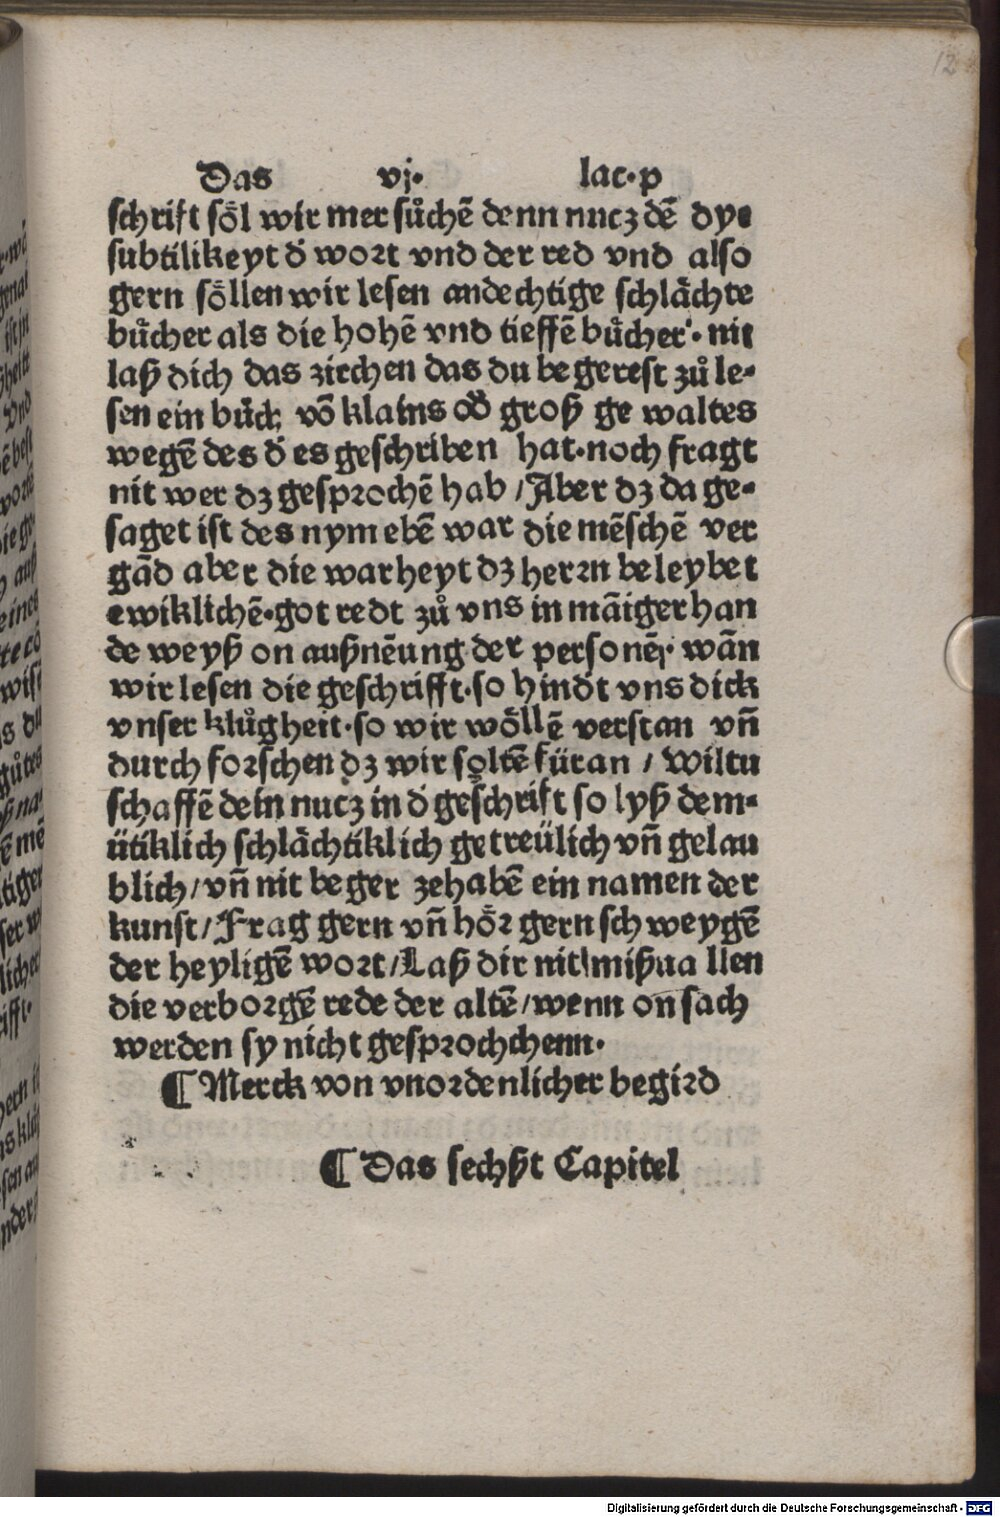 12
Das vj. lac. p
schrift sől wir mer sůchē denn nucz dē dye
subtilikeyt d̄ wort vnd der red vnd also
gern sőllen wir lesen andechtige schlächte
bůcher als die hohē vnd tieffē bůcher. nit
laß dich das zirchen das du begerest zů le-
sen ein bůch vō klains od̄ groß ge waltes
wegē des d̄ es geschriben hat. noch fragt
nit wer dz gesprochē hab / Aber dz da ge-
saget ist des nym ebē war die mēschē ver
gād aber die warheyt dz herrn beleybet
ewiklichē. got redt zů vns in māiger han
de weyß on außnēung der personē. wān
wir lesen die geschrifft. so hindt vns dick
vnser klůgheit. so wir wőllē verstan vn̄
durch forschen dz wir soltē füran / Wiltu
schaffē dein nucz in d̄ geschrift so lyß dem-
ütiklich schlächtiklich getreülich vn̄ gelau
blich / vn̄ nit beger zehabē ein namen der
kunst / Frag gern vn̄ hőr gern schweygē
der heyligē wort / Laß dir nit mißua llen
die verborgē rede der altē / wenn on sach
werden sy nicht gesprochchenn.
¶ Merck von vnordenlicher begird
¶ Das sechßt Capitel
Digitalisierung gefördert durch die Deutsche Forschungsgemeinschaft - DFG